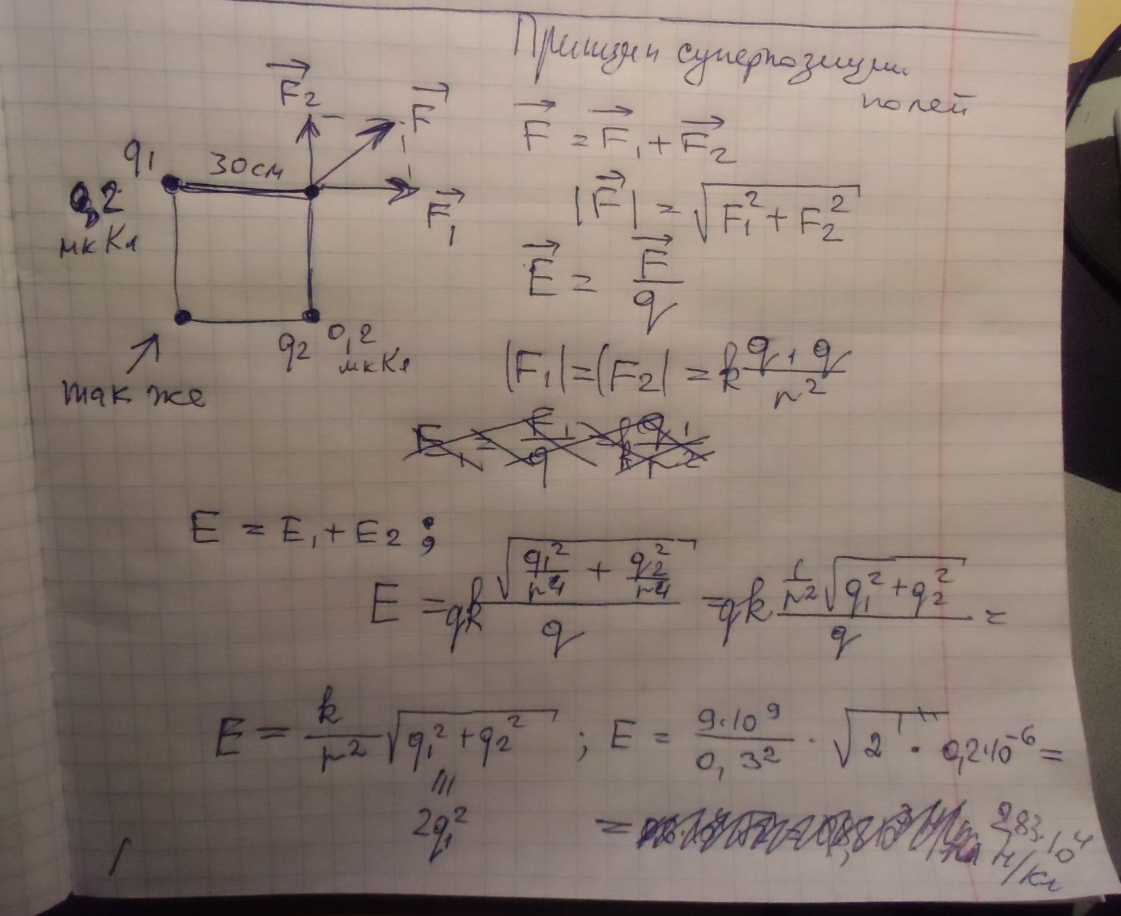 Принцип суперпозиции
полей
F₂
F
q₁
30 см
0,2
мкКл
F₁
q₂ 0,2
мкКл
так же
F = F₁ + F₂
|F| = √(F₁² + F₂²)
E = F/q
|F₁| = |F₂| = k q₁q/r²
E = E₁ + E₂ ;
E = qk √(q₁²/r⁴ + q₂²/r⁴) / q = qk (1/r² √(q₁² + q₂²)) / q =
E = k/r² √(q₁² + q₂²) ; E = 9·10⁹/0,3² · √2 · 0,2·10⁻⁶ =
2q₁²
= 2,83·10⁴
Н/Кл